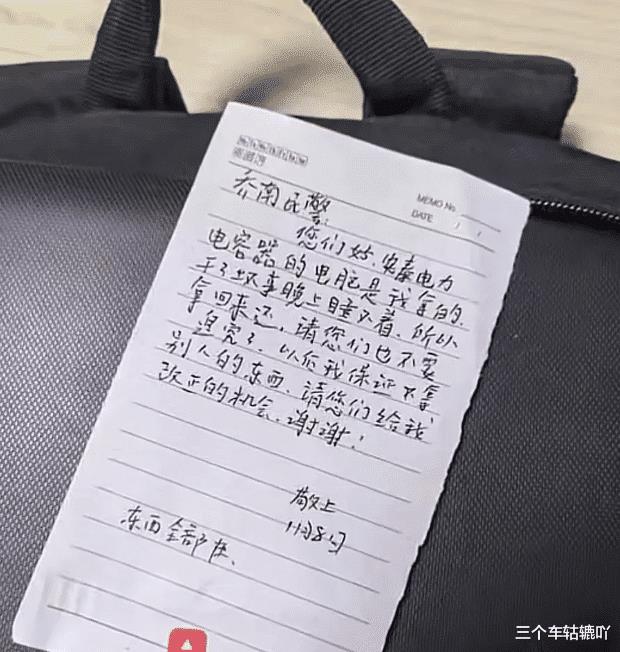 MEMO No.
DATE / /
乔南民警:
您们好、安泰电力
电容器的电脑是我拿的.
干了坏事晚上睡不着.所以
拿回来还,请您们也不要
追究了.以后我保证不拿
别人的东西.请您们给我
改正的机会.谢谢!
敬上
11月8日
东西全部在、
三个车轱辘吖